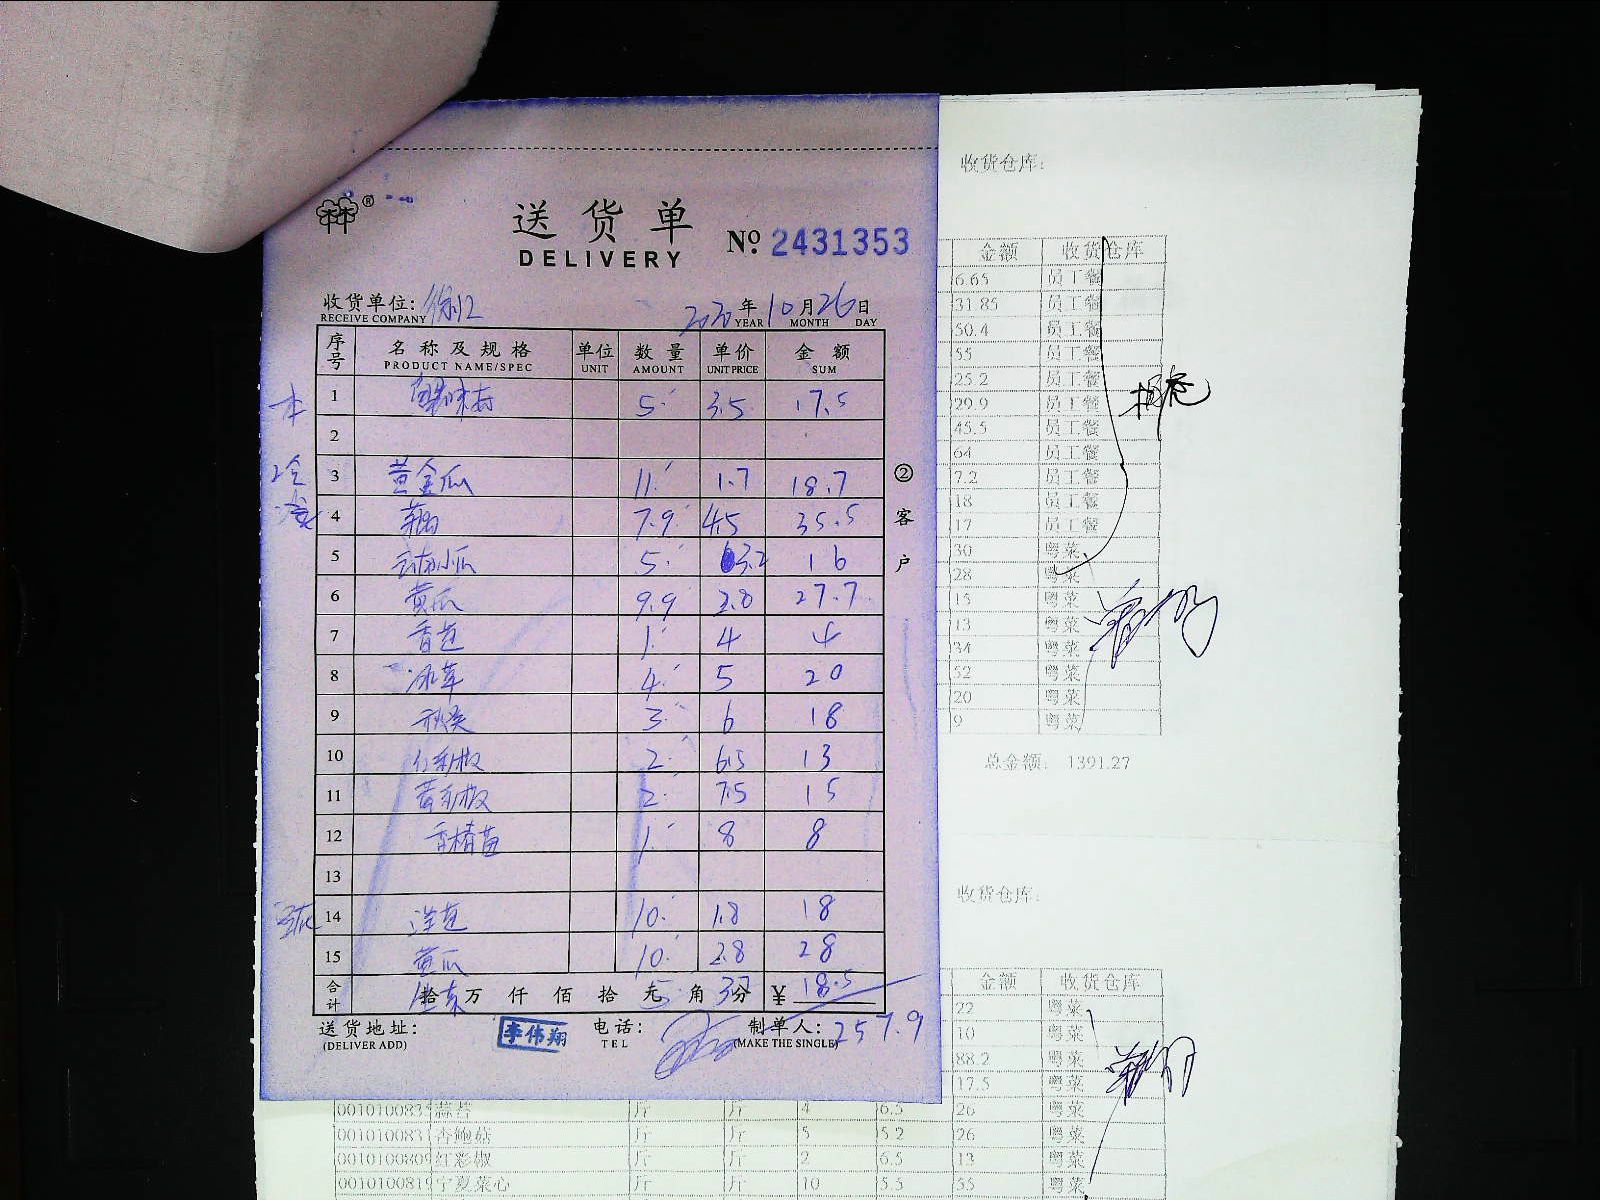 ®
送货单
DELIVERY
No. 2431353
收货单位:
RECEIVE COMPANY
2020年10月26日
YEAR MONTH DAY
序号 名称及规格 单位 数量 单价 金额
PRODUCT NAME/SPEC UNIT AMOUNT UNIT PRICE SUM
1 5 3.5 17.5
2
3 黄金瓜 11 1.7 18.7
4 7.9 4.5 35.5
5 5 3.2 16
6 黄瓜 9.9 2.8 27.7
7 香芭 1 4 4
8 冰草 4 5 20
9 秋葵 3 6 18
10 红彩椒 2 6.5 13
11 黄彩椒 2 7.5 15
12 香椿苗 1 8 8
13
14 洋芭 10 1.8 18
15 黄瓜 10 2.8 28
合计 拾 万 仟 佰 拾 元 角 分 ¥ 18.5
送货地址: 李伟翔 电话: 制单人: 257.9
(DELIVER ADD) TEL (MAKE THE SINGLE)
②客户
收货仓库:
金额 收货仓库
6.65 员工餐
31.85 员工餐
50.4 员工餐
55 员工餐
25.2 员工餐
29.9 员工餐
45.5 员工餐
64 员工餐
7.2 员工餐
18 员工餐
17 员工餐
30 粤菜
28 粤菜
15 粤菜
13 粤菜
34 粤菜
52 粤菜
20 粤菜
9 粤菜
总金额: 1391.27
收货仓库:
金额 收货仓库
22 粤菜
10 粤菜
88.2 粤菜
17.5 粤菜
00101008 蒜苔 斤 斤 4 6.5 26 粤菜
00101008 杏鲍菇 斤 斤 5 5.2 26 粤菜
0010100809 红彩椒 斤 斤 2 6.5 13 粤菜
0010100819 宁夏菜心 斤 斤 10 5.5 55 粤菜